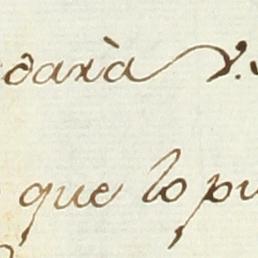 darà V.
que lo pu